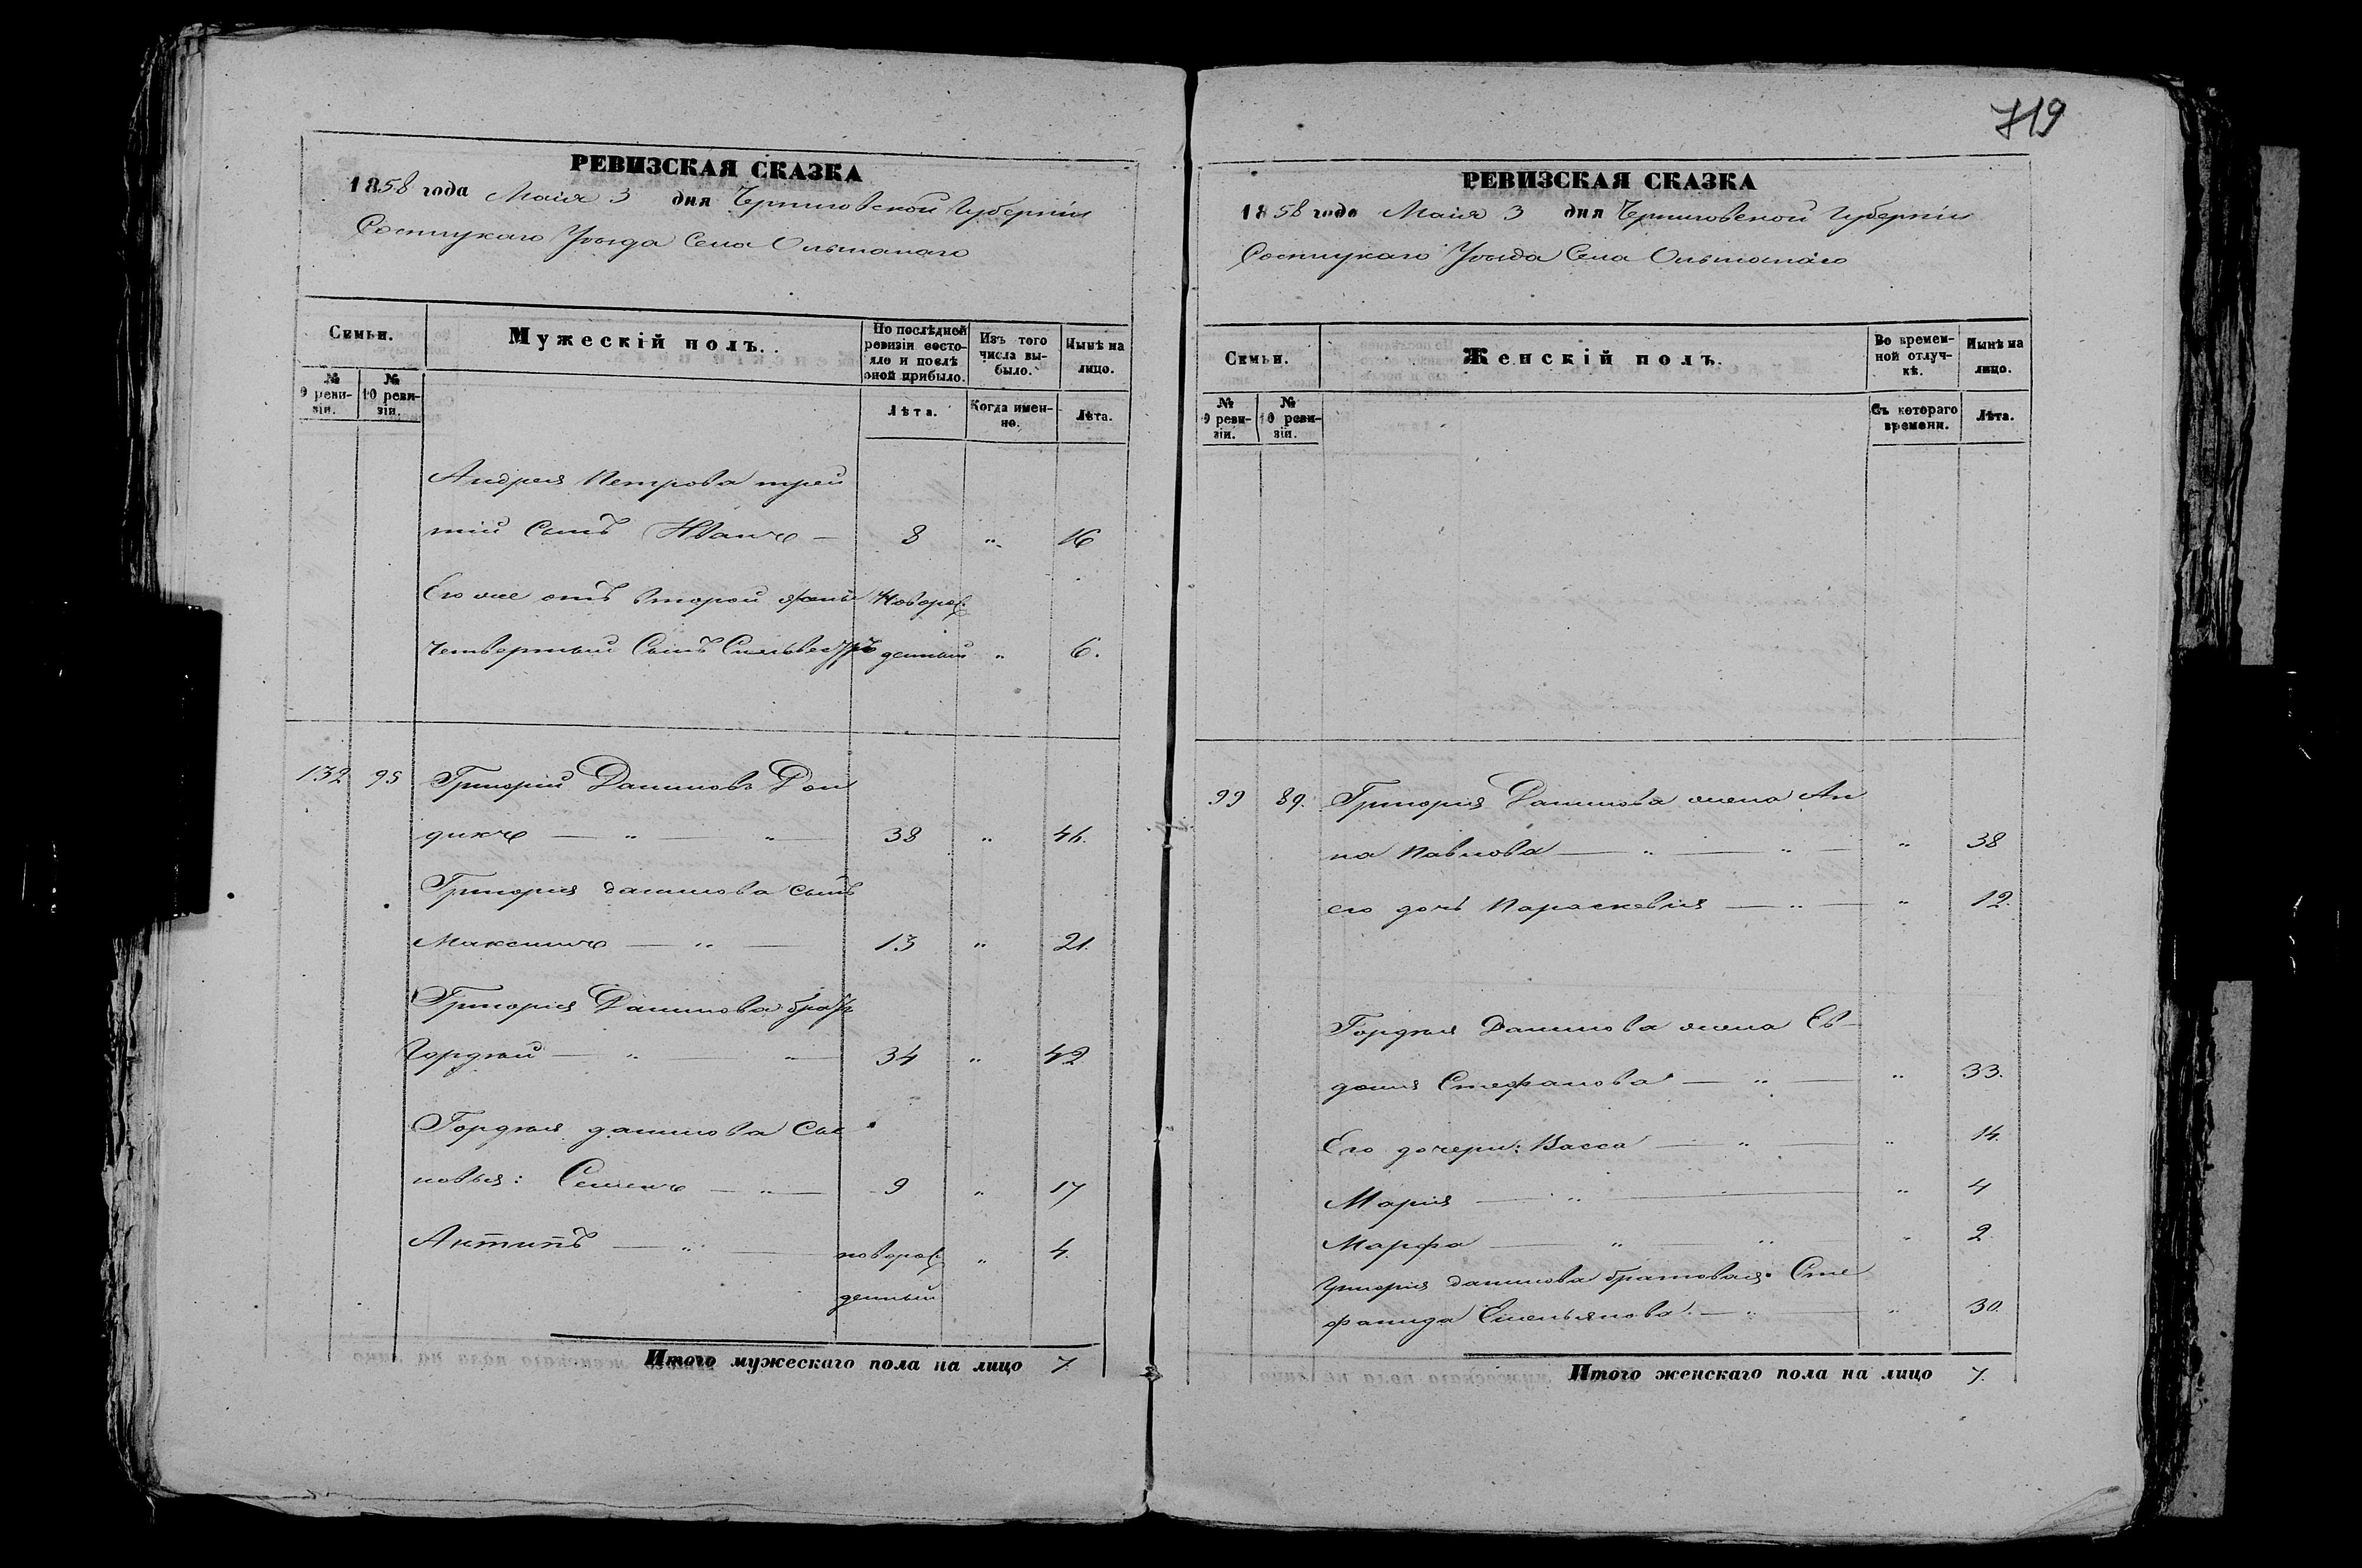 719
РЕВИЗСКАЯ СКАЗКА
1858 года Маія 3 дня Черниговской Губерніи
Сосницкаго Уѣзда Села Ольшанаго
Семьи.
Мужескій полъ.
По послѣдней ревизіи состояло и послѣ оной прибыло.
Изъ того числа выбыло.
Нынѣ на лицо.
№ 9 ревизіи.
№ 10 ревизіи.
Лѣта.
Когда именно.
Лѣта.
Андрея Петрова трей
тій Сынъ Иванъ — 8 " 16
Его же отъ второй жены Новорож
четвертый Сынъ Сильвестръ денный " 6.
132 95 Григорій Даниловъ Дои
дикъ — " — " — 38 " 46.
Григорія данилова сынъ
Максимъ — " — 13 " 21.
Григорія Данилова братъ
Гордѣй — " — " — 34 " 42
Гордѣя данилова Сы
новья: Семенъ — " — 9 " 17
Антипъ — " — новорож " 4.
денный
Итого мужескаго пола на лицо 7.
РЕВИЗСКАЯ СКАЗКА
1858 года Маія 3 дня Черниговской Губерніи
Сосницкаго Уѣзда Села Ольшанаго
Семьи.
Женскій полъ.
Во временной отлучкѣ.
Нынѣ на лицо.
№ 9 ревизіи.
№ 10 ревизіи.
Съ котораго времени.
Лѣта.
99 89. Григорія Данилова жена Ан
на Павлова — " — " — " 38
его дочь Параскевія — " — " 12.
Гордѣя Данилова жена Ев-
докія Стефанова — " — " 33.
Его дочери: Васса — " — " 14.
Марія — " — " 4
Марфа — " — " — " 2.
Григорія данилова братовая Сте
фанида Емельянова — " — " 30.
Итого женскаго пола на лицо 7.